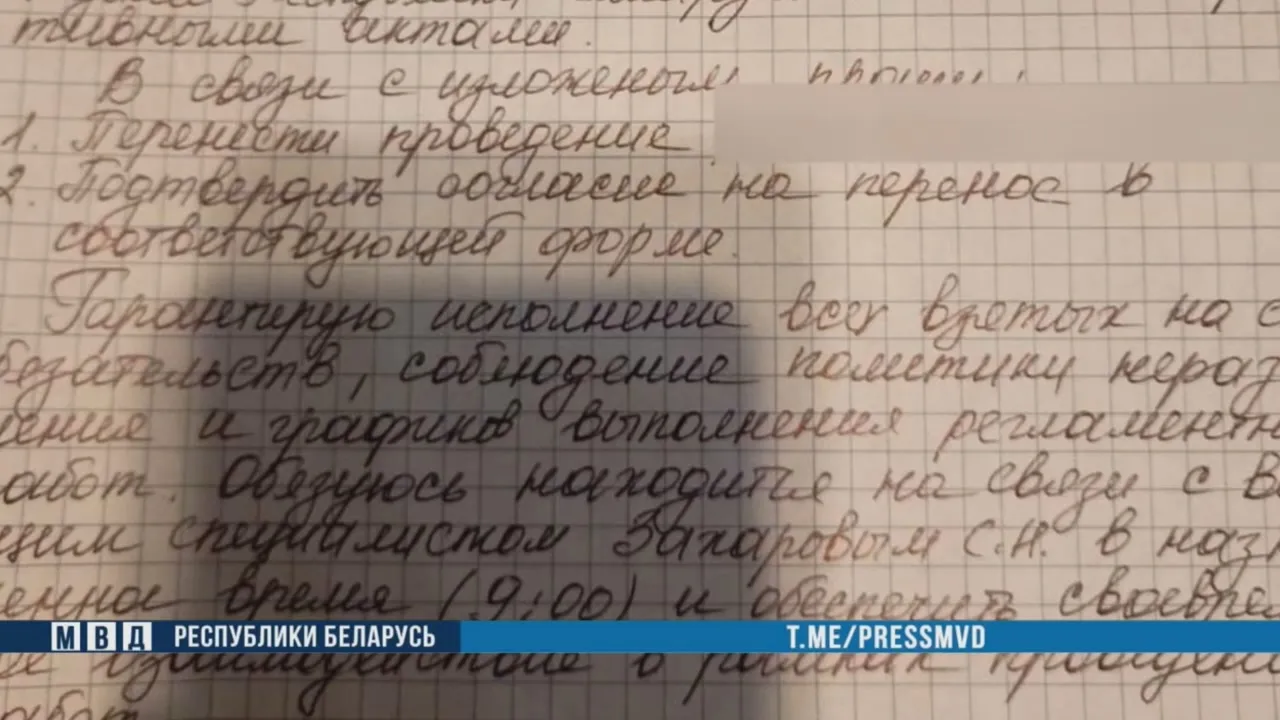 тивными актами.
В связи с изложеным
1. Перенести проведение
2. Подтвердить согласие на перенос в
соответствующей форме.
Гарантирую исполнение всех взятых на с
бязательств, соблюдение политики нераз
ения и графиков выполнения регламентн
абот. Обязуюсь находится на связи с В
щим специалистом Захаровым С.Н. в наз
енное время (9:00) и обеспечить своевре
МВД РЕСПУБЛИКИ БЕЛАРУСЬ T.ME/PRESSMVD
взаимодействие в рамках проведени
абот